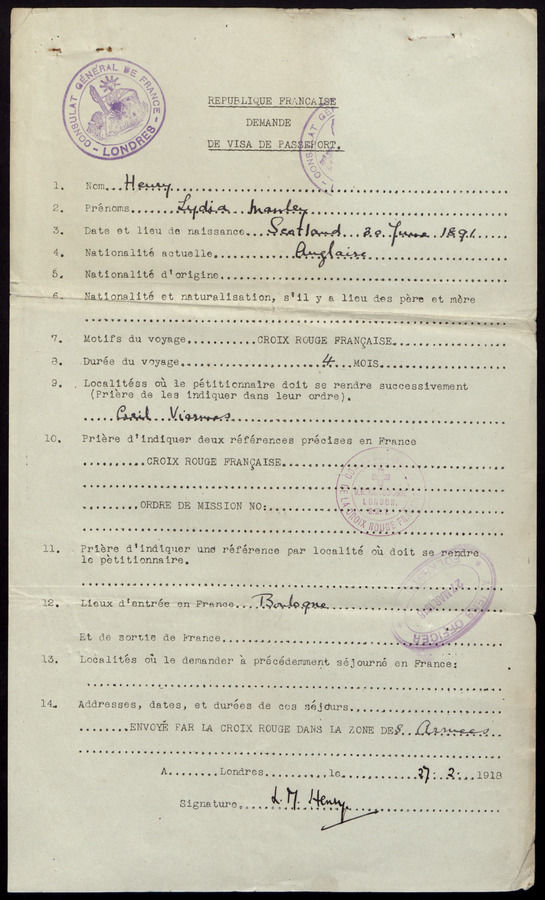 CONSULAT GÉNÉRAL DE FRANCE
- LONDRES -
REPUBLIQUE FRANCAISE
DEMANDE
DE VISA DE PASSEPORT.
1. Nom...Henry
2. Prénoms...Lydia Manley
3. Date et lieu de naissance...Scotland 30 June 1891
4. Nationalité actuelle...Anglaise
5. Nationalité d'origine
6. Nationalité et naturalisation, s'il y a lieu des père et mère
7. Motifs du voyage...CROIX ROUGE FRANÇAISE
8. Durée du voyage...4...MOIS
9. Localitéss où le pétitionnaire doit se rendre successivement
(Prière de les indiquer dans leur ordre).
10. Prière d'indiquer deux références précises en France
CROIX ROUGE FRANÇAISE
LONDON.
ORDRE DE MISSION NO:
CROIX ROUGE
11. Prière d'indiquer une référence par localité où doit se rendre
le pètitionnaire.
12. Lieux d'entrée en France...Boulogne
OFFICER
Et de sortie de France
13. Localités où le demander à précédemment séjourné en France:
14. Addresses, dates, et durées de ces séjours
ENVOYÉ PAR LA CROIX ROUGE DANS LA ZONE DES Armees
A...Londres...le...27. 2. 1918
Signature...L. M. Henry